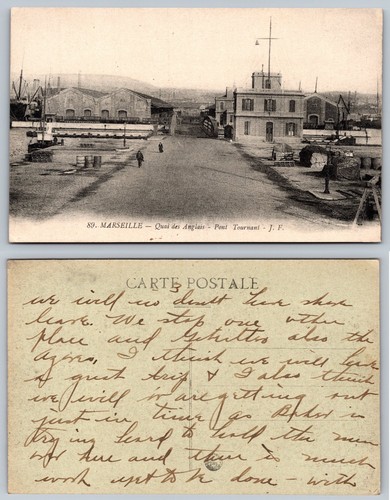 89. MARSEILLE — Quai des Anglais - Pont Tournant - J. F.
CARTE POSTALE
3
we will no doubt have shore
leave. We stop one other
place and Gibralter also the
Azores. I think we will have
a great trip & I also think
we will be are getting out
just in time as is
trying hard to hold the men
over here and there is much
work yet to be done - with